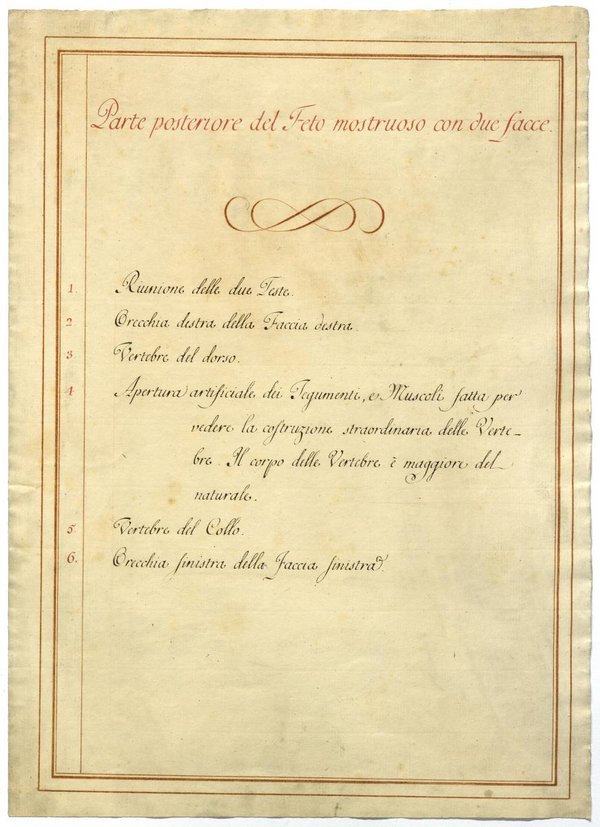 Parte posteriore del Feto mostruoso con due facce.
1. Riunione delle due Teste.
2 Orecchia destra della Faccia destra.
3 Vertebre del dorso.
4 Apertura artificiale dei Tegumenti, e Muscoli fatta per
vedere la costruzione straordinaria delle Verte-
bre. Il corpo delle Vertebre è maggiore del
naturale.
5 Vertebre del Collo.
6. Orecchia sinistra della Faccia sinistra.